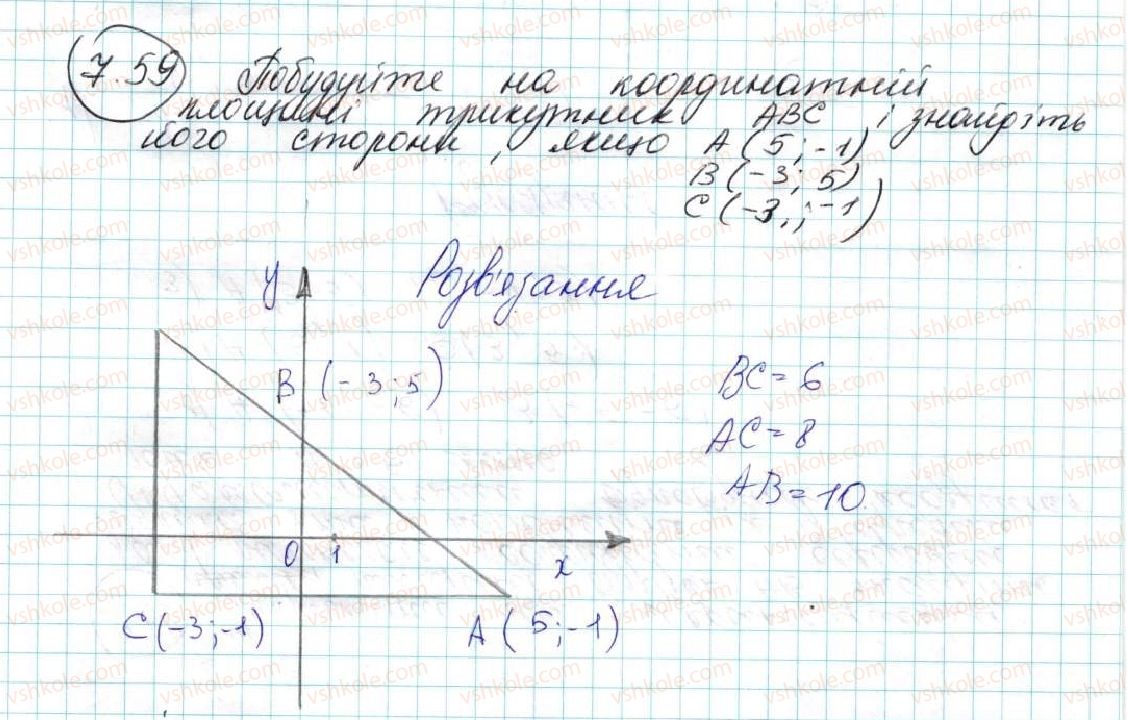 7.59 Побудуйте на координатній
площині трикутник ABC і знайдіть
його сторони, якщо A (5; -1)
B (-3; 5)
C (-3; -1)
Розв'язання
y
B (-3; 5)
BC = 6
AC = 8
AB = 10
0 1 x
C (-3; -1) A (5; -1)
vshkole.com